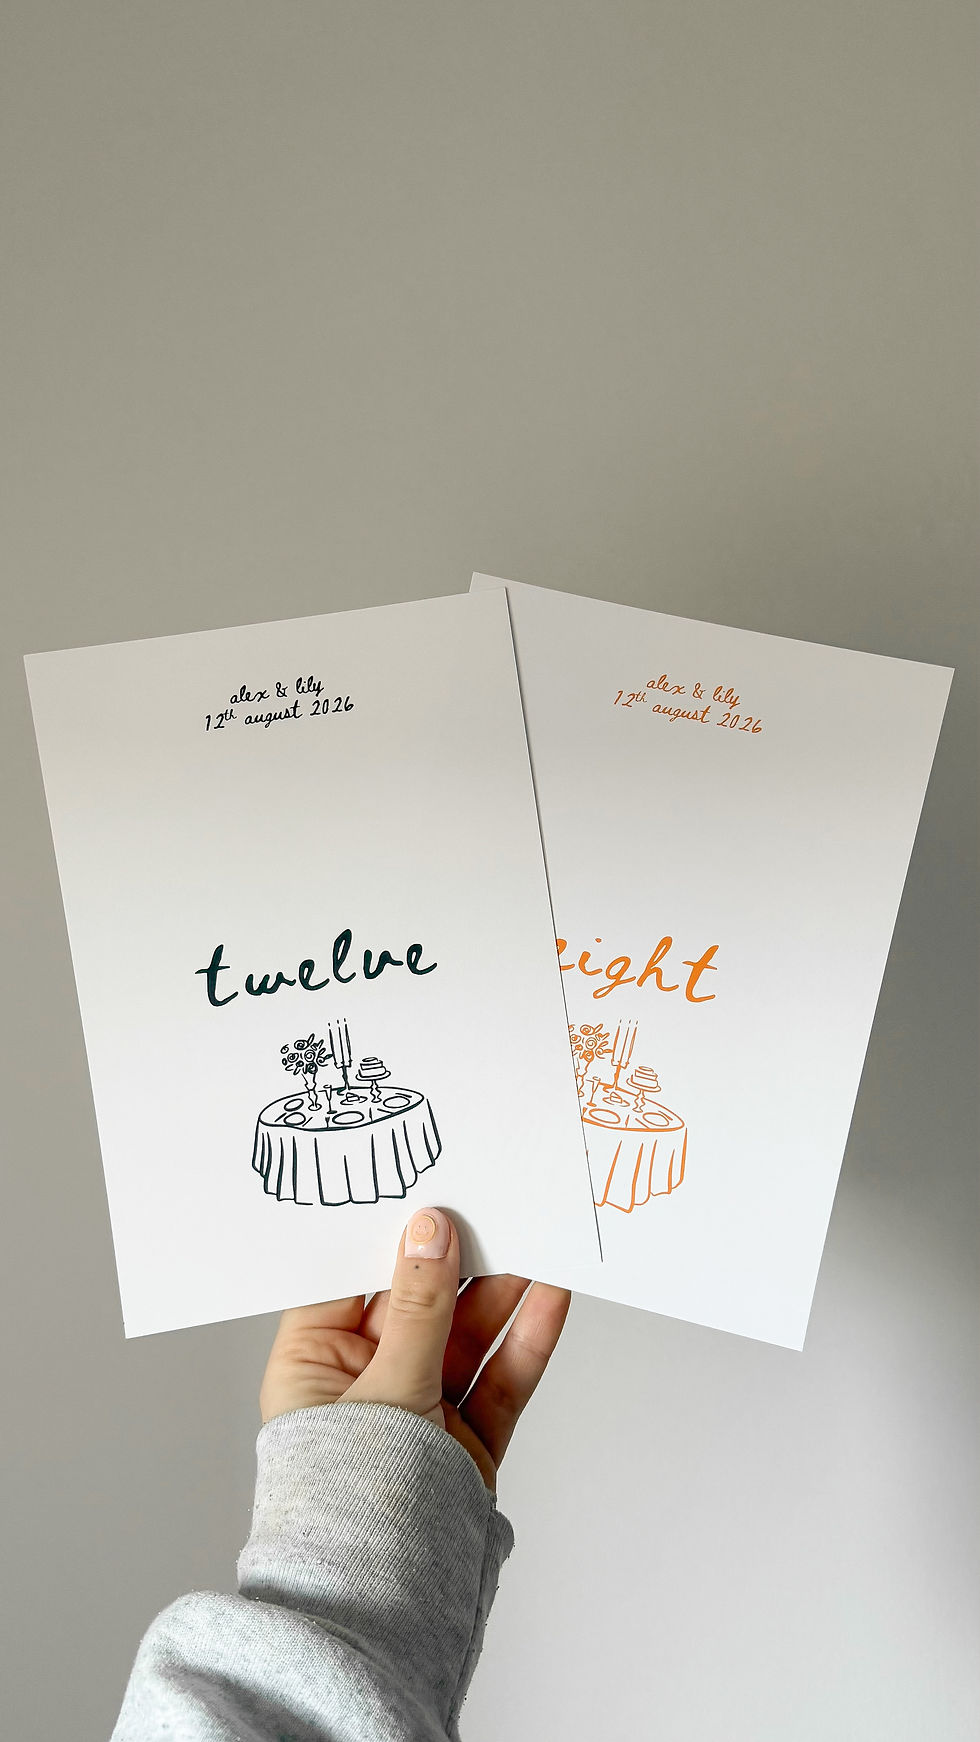 alex & lily
12th august 2026
twelve
alex & lily
12th august 2026
eight